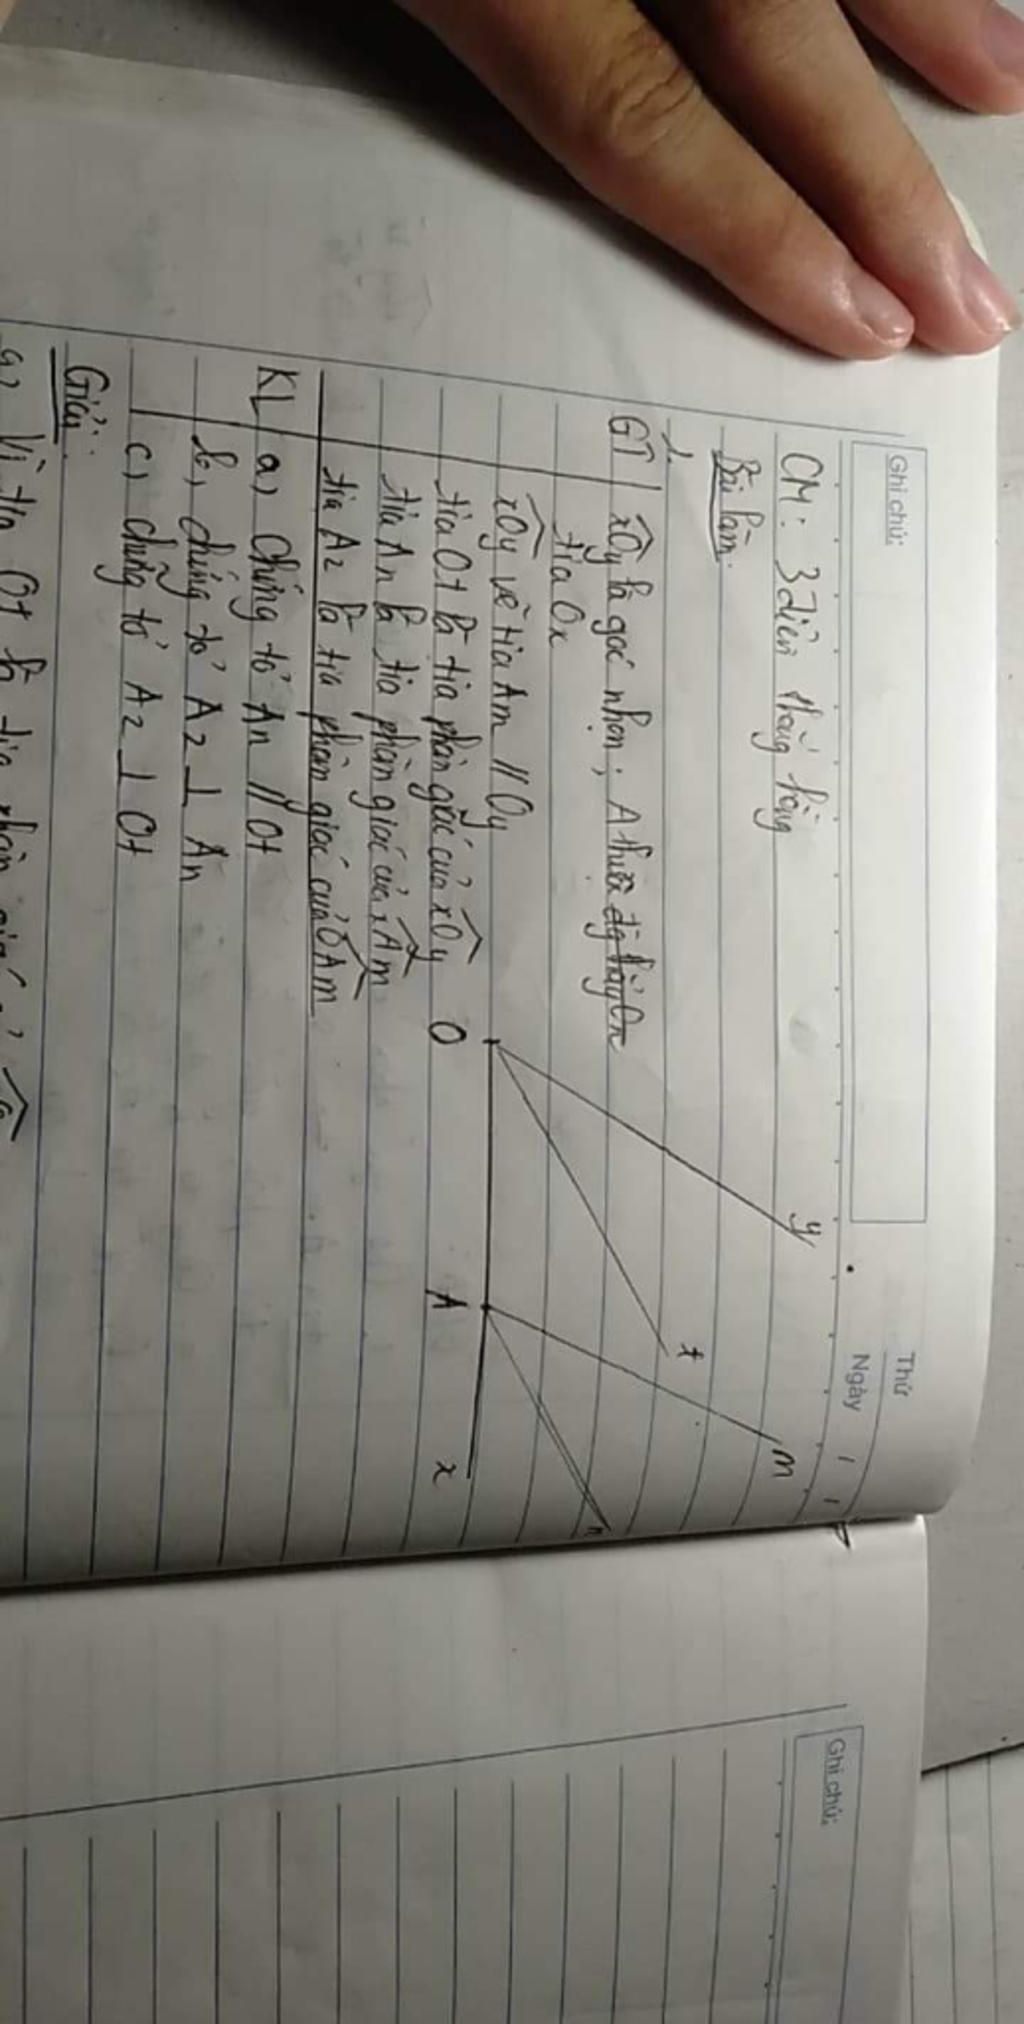 Ghi chú:
Thứ
Ngày / /
CM: 3 điểm thẳng hàng
Bài làm:
1.
GT xOy là góc nhọn; A thuộc
tia Ox
xOy vẽ tia Am // Oy
tia Ot là tia phân giác của xOy
tia An là tia phân giác của xAm
tia Az là tia phân giác của OAm
KL a, Chứng tỏ An // Ot
b, chứng tỏ Az ⊥ An
c, chứng tỏ Az ⊥ Ot
Giải:
a, Vì tia Ot là tia phân giác của
y
t
m
n
O
A
x
Ghi chú: